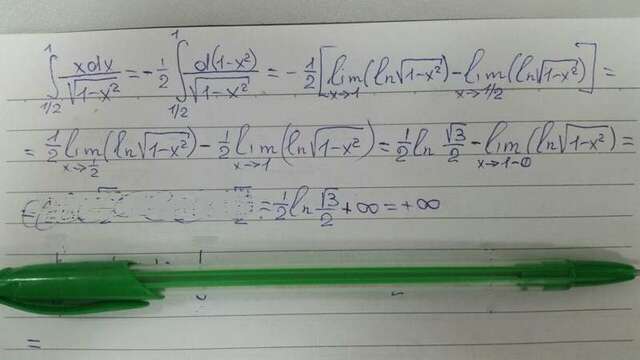 ∫_{1/2}^{1} xdx/√(1-x²) = -1/2 ∫_{1/2}^{1} d(1-x²)/√(1-x²) = -1/2 [lim_{x→1}(ln√(1-x²)) - lim_{x→1/2}(ln√(1-x²))] =
= 1/2 lim_{x→1/2}(ln√(1-x²)) - 1/2 lim_{x→1}(ln√(1-x²)) = 1/2 ln √3/2 - lim_{x→1-0}(ln√(1-x²)) =
= 1/2 ln √3/2 + ∞ = +∞
=